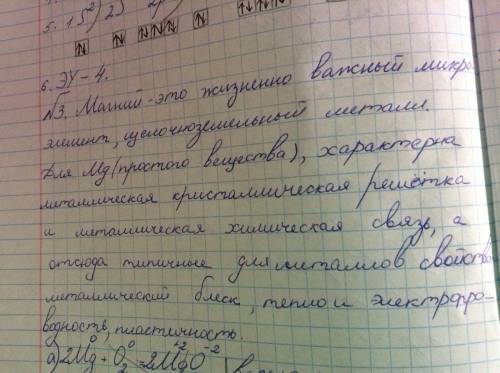 5. 1s²) 2s
6. ЭУ – 4.
√3. Магний - это жизненно важный микро
элемент, щелочноземельный металл.
Для Mg (простого вещества), характерна
металлическая кристаллическая решётка
и металлическая химическая связь, а
отсюда типичные для металлов свойства
металлический блеск, тепло и электропро-
водность, пластичность.
а) 2Mg⁰ + O₂⁰ = 2Mg⁺²O⁻²